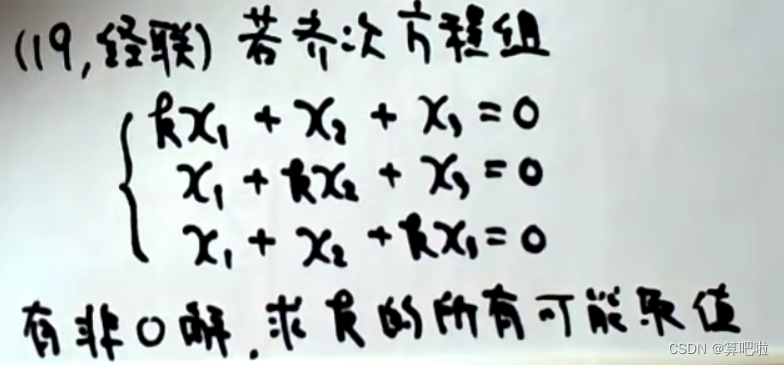 (19,经联) 若齐次方程组
kx₁ + x₂ + x₃ = 0
x₁ + kx₂ + x₃ = 0
x₁ + x₂ + kx₃ = 0
有非0解,求k的所有可能取值
CSDN @算吧啦